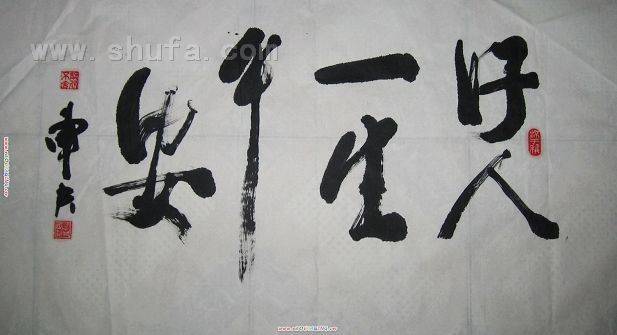 好人
一生
平
安
www.shufa.com